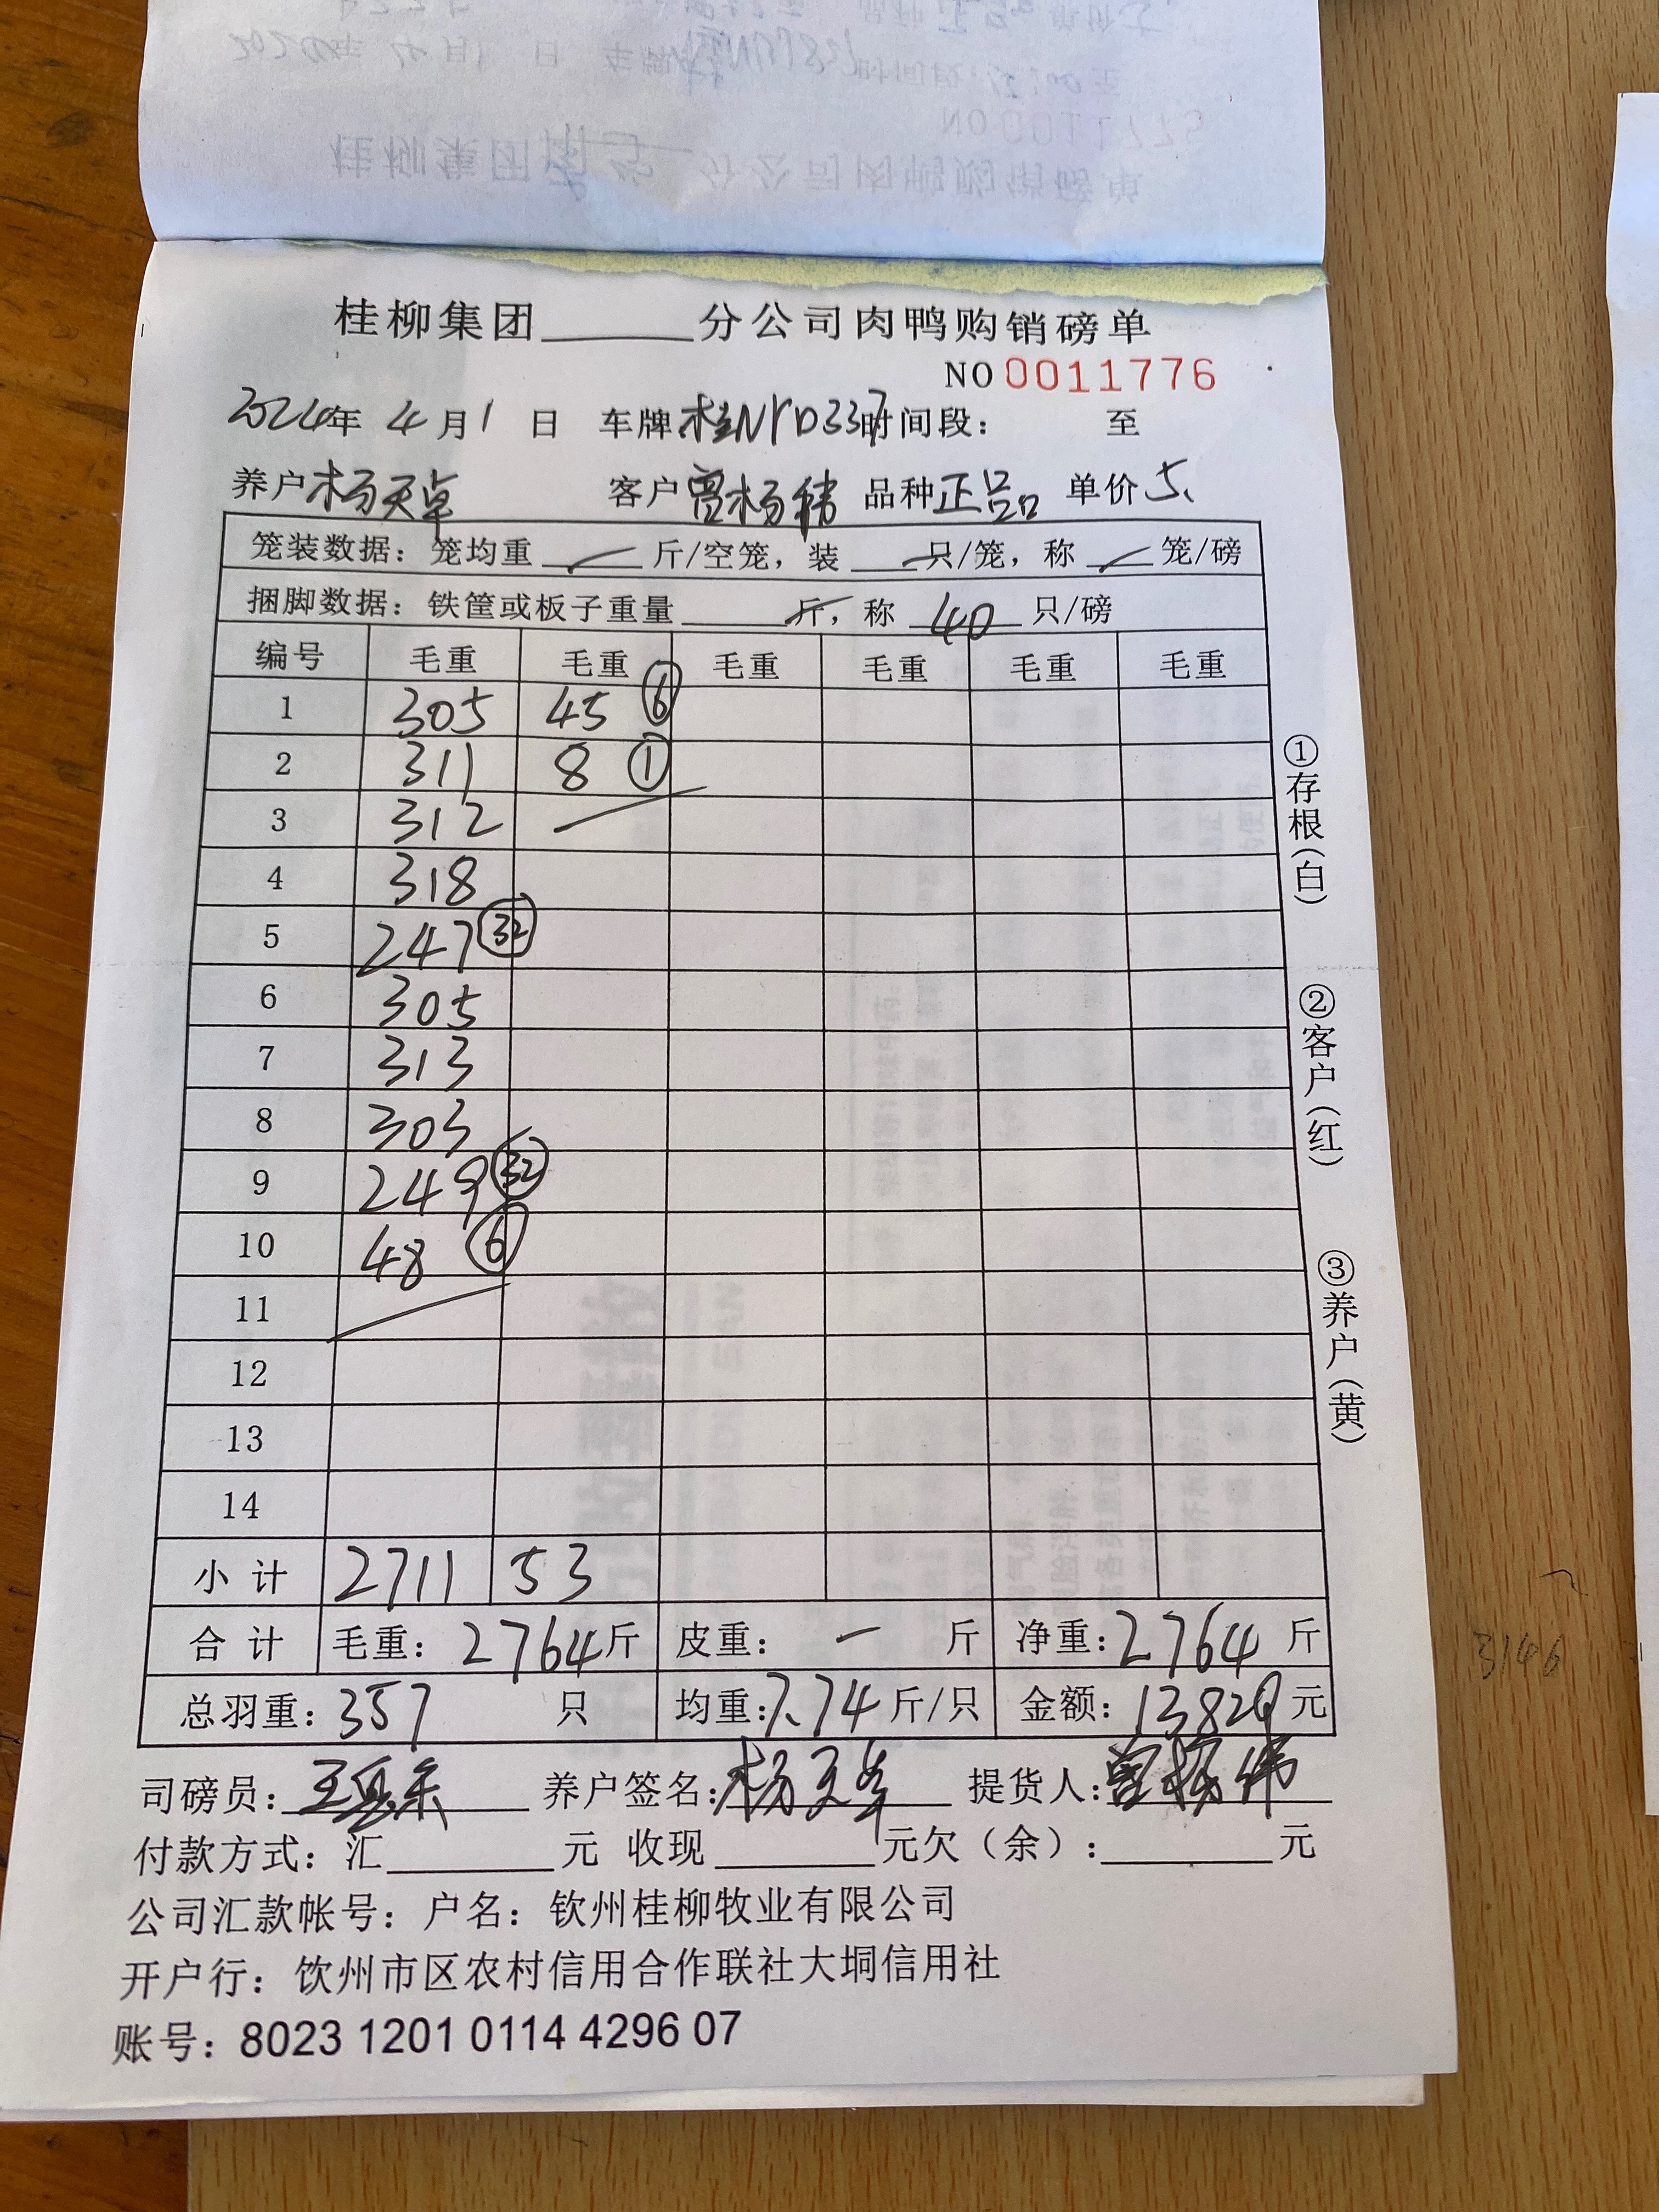 桂柳集团______分公司肉鸭购销磅单
NO 0011776
2024年 4月1日 车牌:桂NYD337时间段: 至
养户杨天卓 客户曾杨纬 品种正品 单价5.
笼装数据:笼均重 斤/空笼,装 只/笼,称 笼/磅
捆脚数据:铁筐或板子重量 斤,称 40 只/磅
编号 毛重 毛重 毛重 毛重 毛重 毛重
1 305 45 ⑥
2 311 8 ①
3 312
4 318
5 247 ㉜
6 305
7 313
8 303
9 249 ㉜
10 48 ⑥
11
12
13
14
小计 2711 53
合计 毛重:2764斤 皮重:一 斤 净重:2764 斤
总羽重:357 只 均重:7.74斤/只 金额:13820元
司磅员: 养户签名:杨天卓 提货人:曾杨纬
付款方式:汇______元 收现______元欠(余):______元
公司汇款帐号:户名:钦州桂柳牧业有限公司
开户行:饮州市区农村信用合作联社大垌信用社
账号:8023 1201 0114 4296 07
①存根(白)
②客户(红)
③养户(黄)
3146